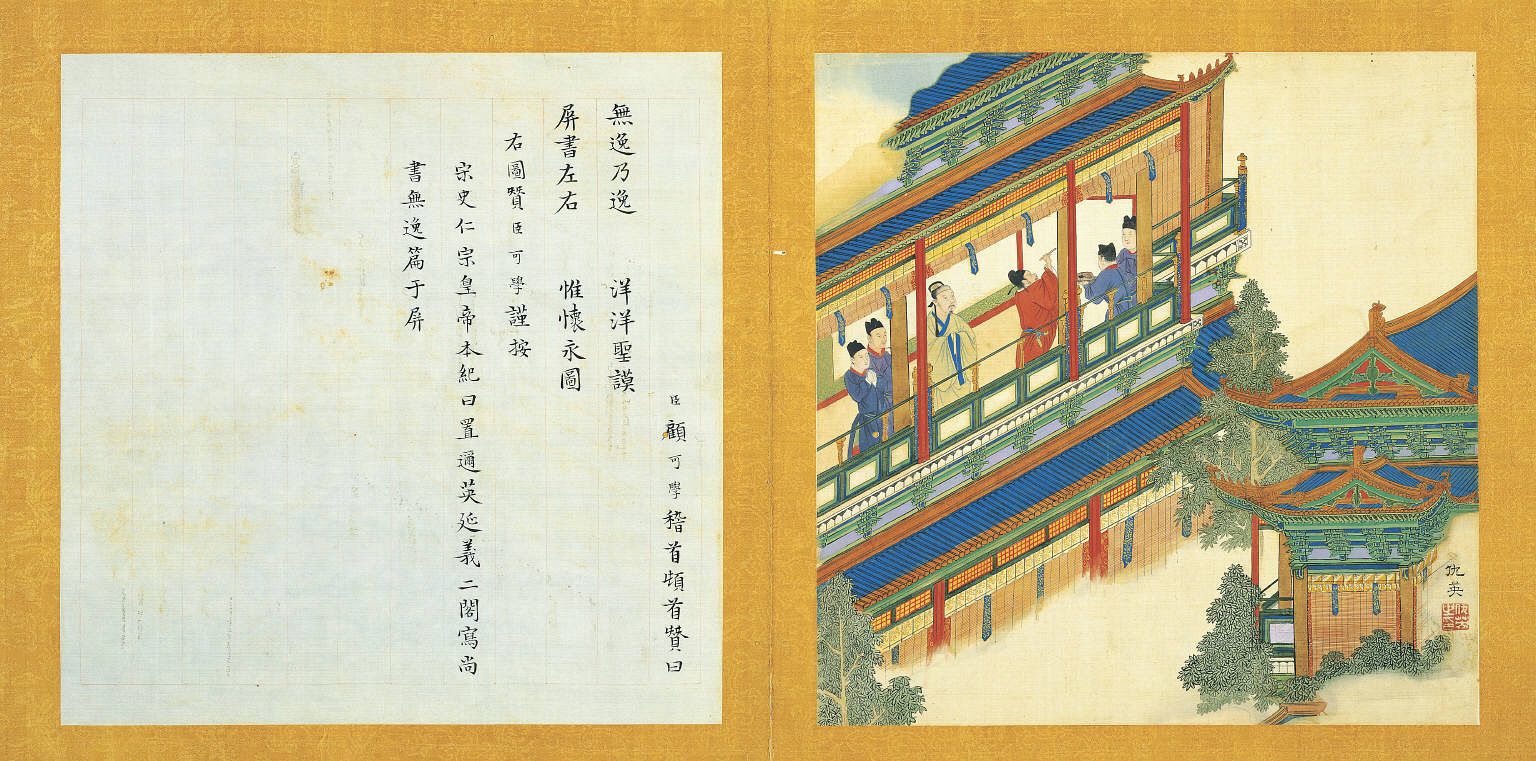 仇英
臣顧可學稽首頓首贊曰
無逸乃逸 洋洋聖謨
屏書左右 惟懷永圖
右圖贊臣可學謹按
宋史仁宗皇帝本紀曰置邇英延義二閣寫尚
書無逸篇于屏